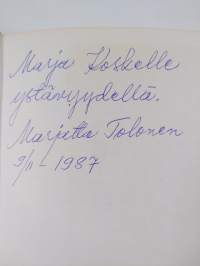 Marja Koskelle
ystävyydellä.
Marjetta Tolonen
9/11-1987